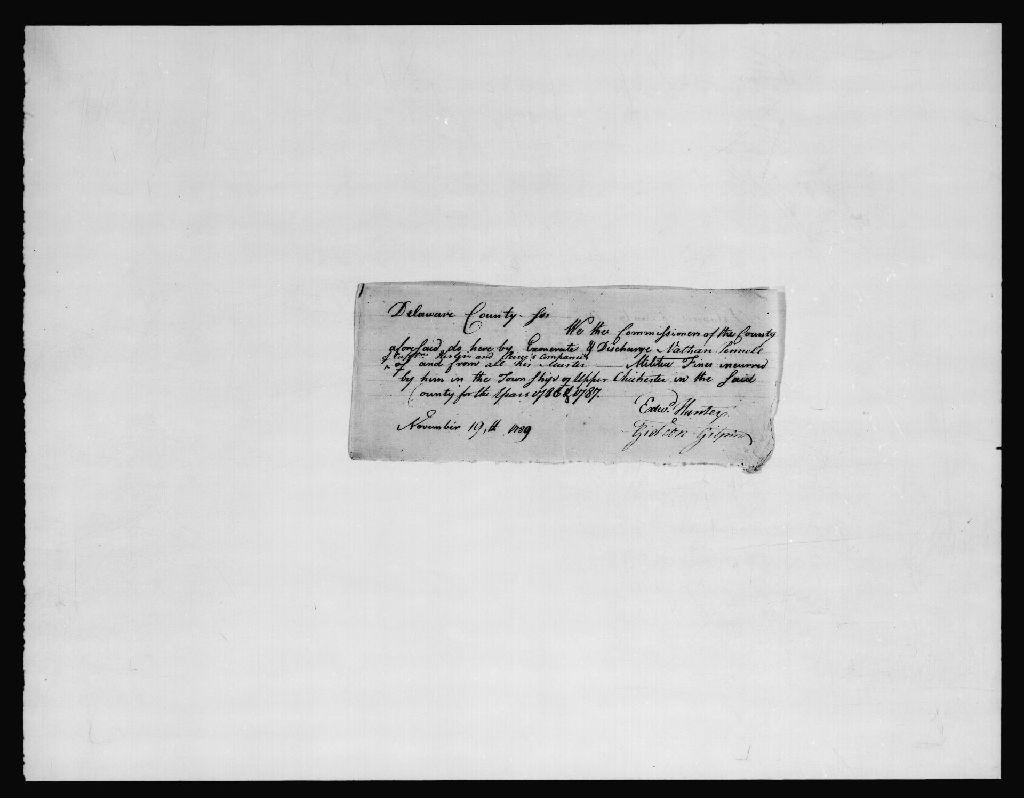 Delaware County ss
We the Commissioners of the County
aforesaid do here by Exonerate & Discharge Nathan
of and Companies
of and from all his Muster Militia Fines incurred
by him in the Town Ship of Upper Chichester in the Said
County for the Years 1786 & 1787.
Edwd. Hunter
November 19,th 1789
Gideon Gilpin